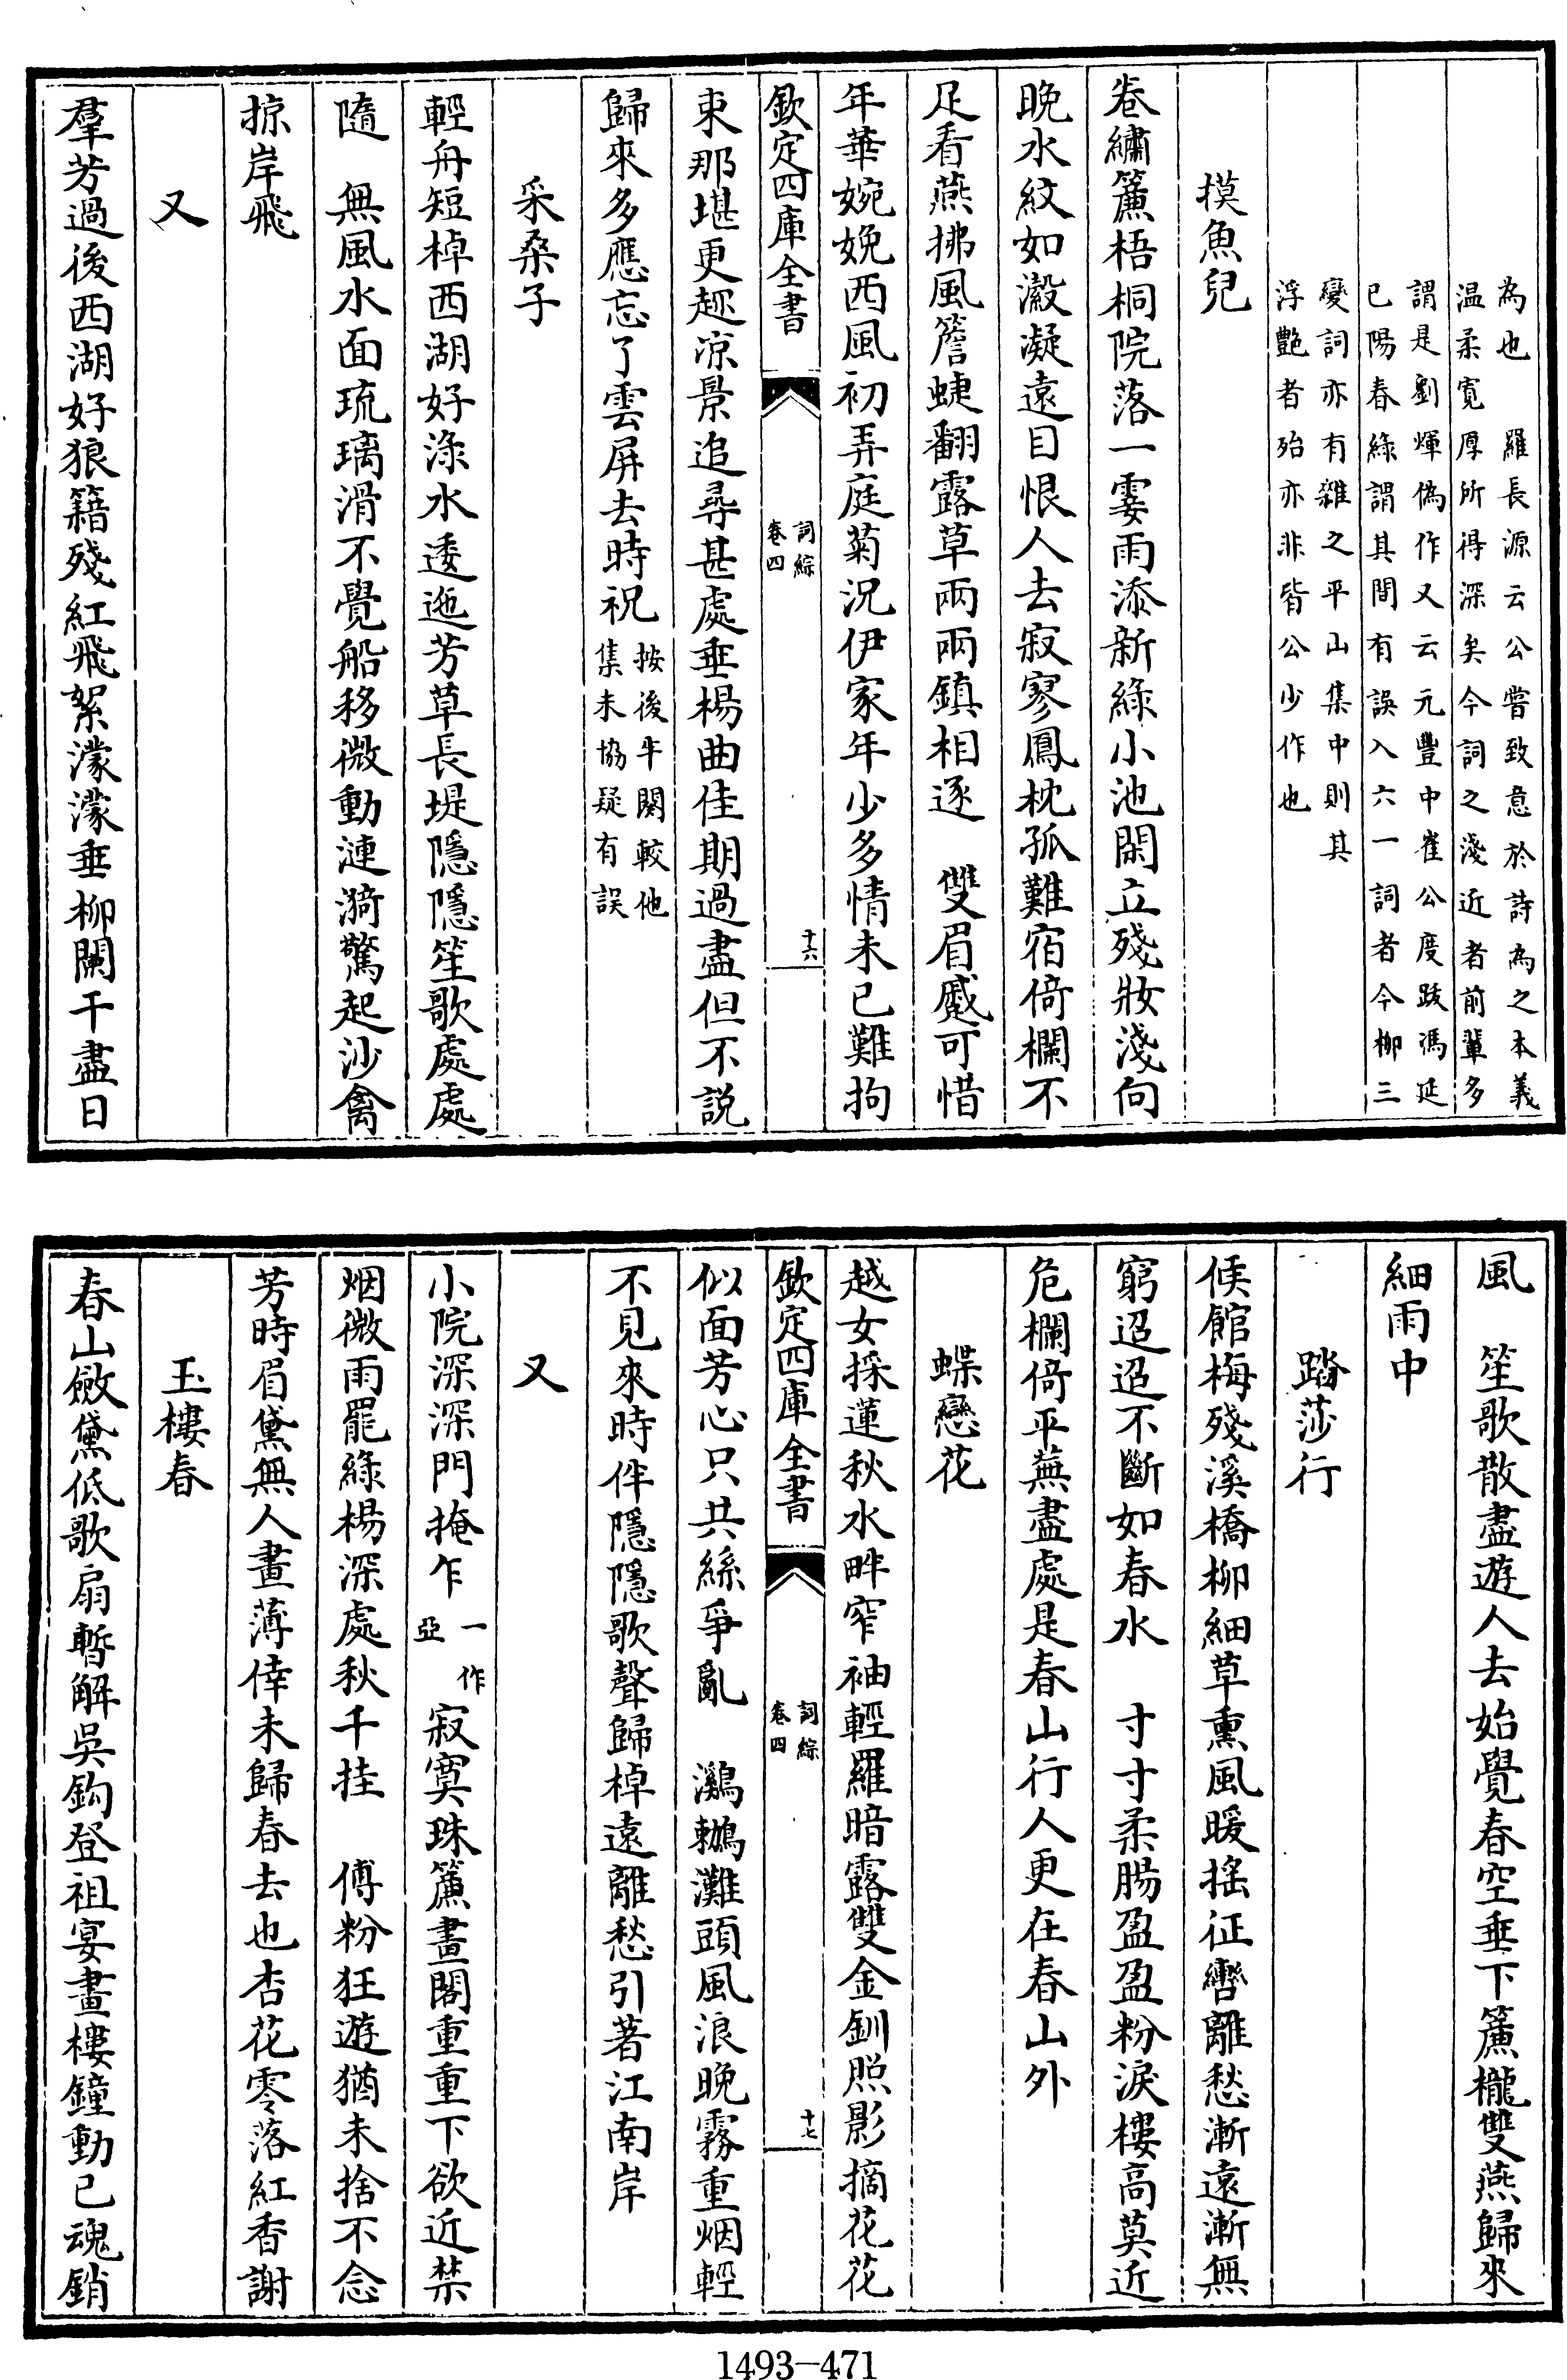 為也　羅長源云公嘗致意於詩為之本義
温柔寛厚所得深矣今詞之淺近者前輩多
謂是劉煇偽作又云元豐中崔公度跋馮延
巳陽春綠謂其間有誤入六一詞者今柳三
變詞亦有雜之平山集中則其
浮艷者殆亦非皆公少作也
摸魚兒
卷繡簾梧桐院落一霎雨添新綠小池閑立殘妝淺向
晚水紋如縠凝遠目恨人去寂寥鳳枕孤難宿倚欄不
足看燕拂風簷蜨翻露草兩兩鎮相逐　雙眉蹙可惜
年華婉娩西風初弄庭菊況伊家年少多情未已難拘
欽定四庫全書　詞綜卷四　十六
束那堪更趂凉景追尋甚處垂楊曲佳期過盡但不説
歸來多應忘了雲屏去時祝按後半闋較他集未協疑有誤
采桑子
輕舟短棹西湖好淥水逶迤芳草長堤隱隱笙歌處處
隨　無風水面琉璃滑不覺船移微動漣漪驚起沙禽
掠岸飛
又
羣芳過後西湖好狼籍殘紅飛絮濛濛垂柳闌干盡日
風　笙歌散盡遊人去始覺春空垂下簾櫳雙燕歸來
細雨中
踏莎行
候館梅殘溪橋柳細草熏風暖揺征轡離愁漸遠漸無
窮迢迢不斷如春水　寸寸柔腸盈盈粉淚樓高莫近
危欄倚平蕪盡處是春山行人更在春山外
蝶戀花
越女採蓮秋水畔窄袖輕羅暗露雙金釧照影摘花花
欽定四庫全書　詞綜卷四　十七
似面芳心只共絲爭亂　鸂鶒灘頭風浪晚霧重烟輕
不見來時伴隱隱歌聲歸棹遠離愁引著江南岸
又
小院深深門掩乍一作亞寂寞珠簾畫閣重重下欲近禁
烟微雨罷綠楊深處秋千挂　傅粉狂遊猶未捨不念
芳時眉黛無人畫薄倖未歸春去也杏花零落紅香謝
玉樓春
春山斂黛低歌扇暫解吳鈎登祖宴畫樓鐘動已魂銷
1493-471